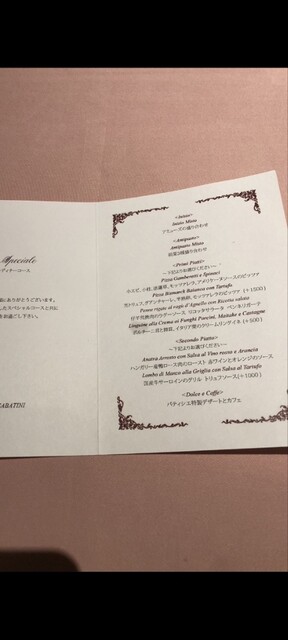 Speciale
ディナーコース
にありがとうございます。
したスペシャルコースと共に
をお過ごし下さい。
SABATINI
<Inizio>
Inizio Misto
アミューズの盛り合わせ
<Antipasto>
Antipasto Misto
前菜の盛り合わせ
<Primi Piatti>
～下記よりお選びください～
Pizza Gamberetti e Spinaci
小エビ、小柱、菠薐草、モッツァレラ、アメリケーヌソースのピッツァ
Pizza Bismarck Bianca con Tartufo
モッツァレラのピッツァ (+1500)
Penne rigate al ragù d'Agnello con Ricotta salata
仔羊のラグーソース リコッタサラータ ペンネリガーテ
Linguine alla Crema ai Funghi Porcini, Maitake e Castagne
ポルチーニ茸と舞茸、イタリア栗のクリームリングイネ (+500)
<Secondo Piatto>
～下記よりお選びください～
Anatra Arrosto con Salsa al Vino rosso e Arancia
ハンガリー産鴨ロース肉のロースト 赤ワインとオレンジのソース
Lombo di Manzo alla Griglia con Salsa al Tartufo
国産牛サーロインのグリル トリュフソース(+1000)
<Dolce e Caffè>
パティシエ特製デザートとカフェ